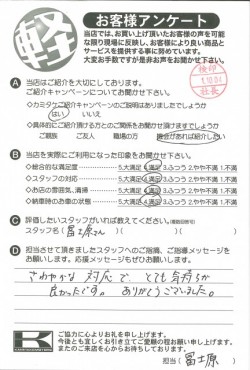 軽
お客様アンケート
当店では、お買上げ頂いたお客様の声を可能
な限り現場に反映し、お客様により良い商品と
サービスを提供する事に努めています。
大変お手数ですが是非お声をお聞かせ下さい。
検印
社長
A 当店はご紹介を大切にしております。
ご紹介キャンペーンについてお聞かせ下さい。
◇カミタケご紹介キャンペーンのご説明はありましたでしょうか
はい いいえ
◆具体的にご紹介頂ける方とのご関係をお聞かせ頂けますでしょうか
ご親戚 ご友人 職場の方 機会があれば紹介したい
B 当店を実際にご利用になった印象をお聞かせ下さい。
◇総合的な満足度 5.大満足 4.満足 3.ふつう 2.やや不満 1.不満
◇スタッフの対応 5.大満足 4.満足 3.ふつう 2.やや不満 1.不満
◇お店の雰囲気、清掃 5.大満足 4.満足 3.ふつう 2.やや不満 1.不満
◇納車時のお車の状態 5.大満足 4.満足 3.ふつう 2.やや不満 1.不満
C 評価したいスタッフがいれば教えてください。(複数回答可)
スタッフ名( 冨士原さん )( )
D 担当させて頂きましたスタッフへのご指摘、ご指導メッセージを
お願いします。応援メッセージもぜひお願いします。
さわやかな 対応で とても気持ちが
良かったです。 ありがとうございました。
K
ご協力に心よりお礼を申し上げます。
今後とも宜しくお引き立てご愛顧の程お願い申し上げます。
またのご来店を心からお待ちしております。
担当( 冨士原 )